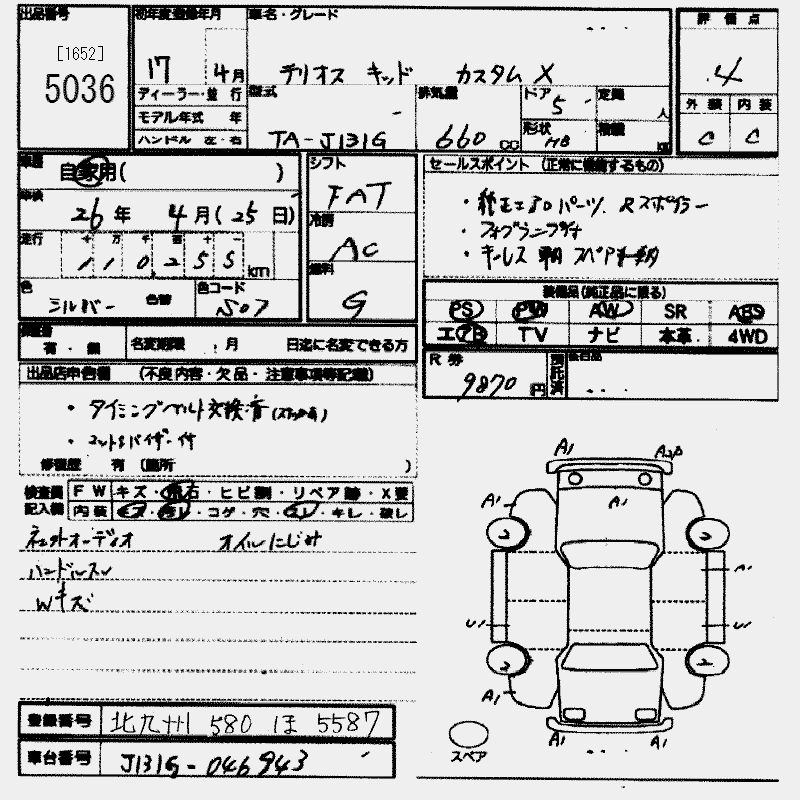 出品番号 初年度登録年月 車名・グレード 評価点
[1652]
5036
17 4月 テリオス キッド カスタム X 4
ディーラー・並行 型式 排気量 ドア 5 定員 人 外装 内装
モデル年式 年
ハンドル 左・右 TA-J131G 660 CC 形状 HB 積載 C C
車歴 自家用( ) シフト FAT セールスポイント (正常に機能するもの)
車検 26年 4月(25日) 冷房 AC
・純正エアロパーツ、Rスポイラー
走行 110,255 km
・キーレス
色 シルバー 色替 色コード S07 燃料 G
装備品(純正品に限る)
PS PW AW SR ABS
エアB TV ナビ 本革 4WD
保証書 有・無 名変期限 月 日迄に名変できる方
R券 9870円 預託済 後日品
出品店申告欄 (不良内容・欠品・注意事項等記載)
・タイミングベルト交換済
修復歴 有 (箇所 )
検査員記入欄 FW キズ・飛石・ヒビ割・リペア跡・X要
内装 キズ・汚レ・コゲ・穴・スレ・キレ・破レ
オーディオ オイルにじみ
ハンドルスレ
Wキズ
A1 A1 A1 A1 A1
2 2
U1 U1
2 2
A1 A1 A1
スペア
登録番号 北九州 580 ほ 5587
車台番号 J131G-046943